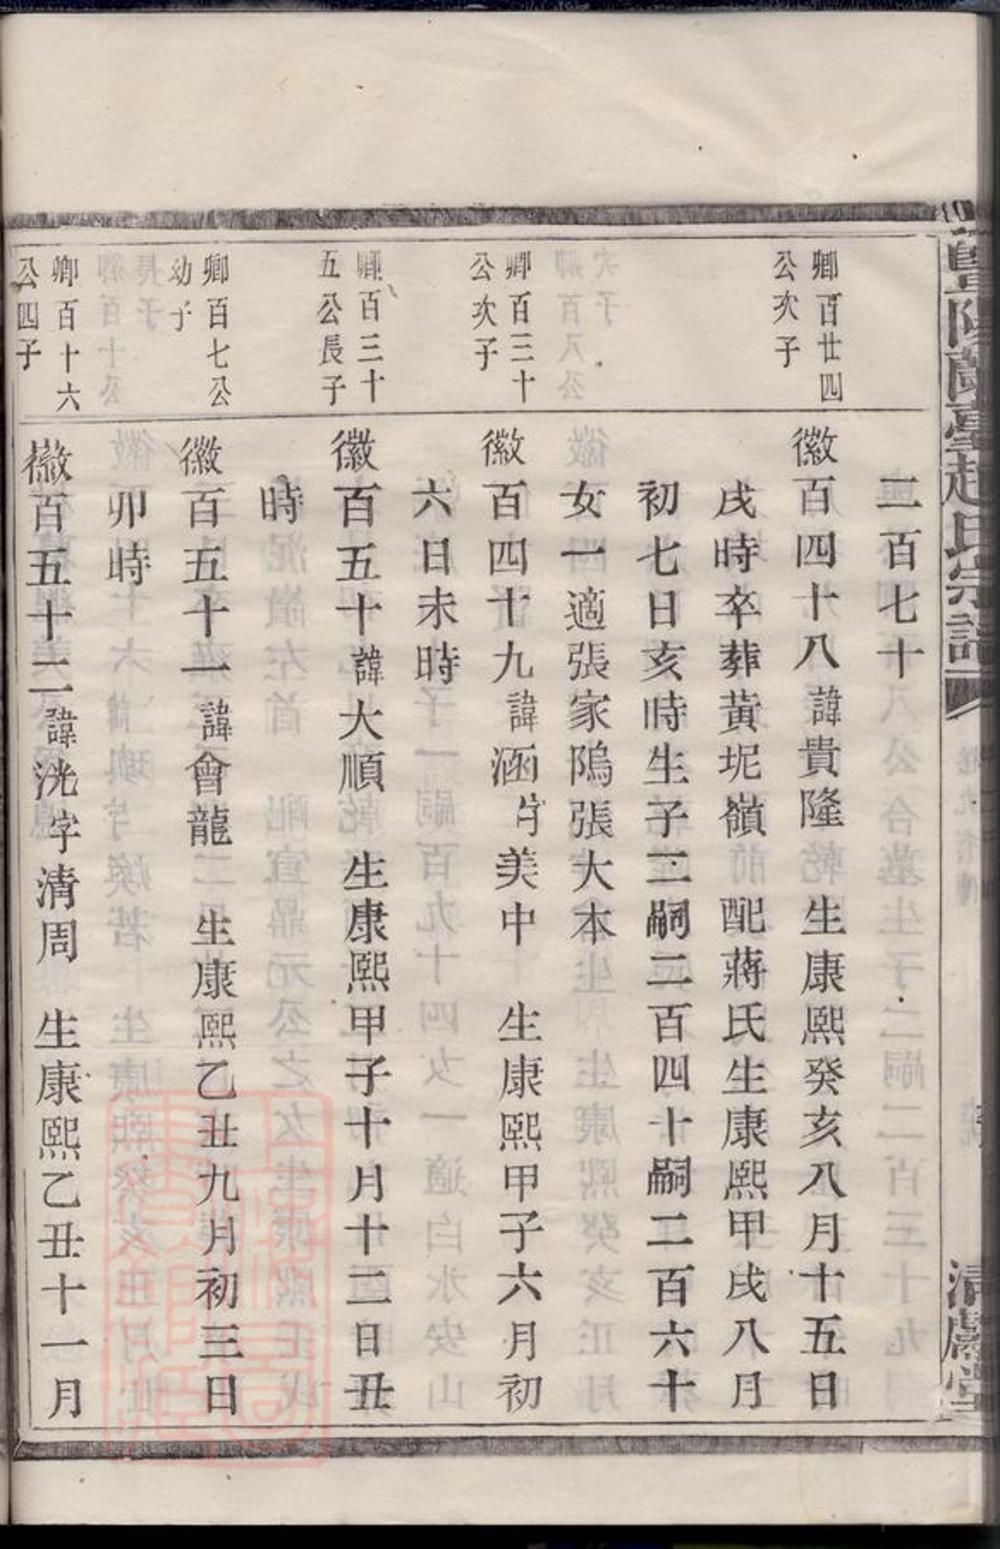 暨陽蘭臺趙氏宗譜
清獻堂
二百七十
卿百廿四
公次子
徽百四十八諱貴隆 生康熙癸亥八月十五日
戌時卒葬黃坭嶺 配蔣氏生康熙甲戌八月
初七日亥時生子二嗣二百四十嗣二百六十
女一適張家隖張大本
卿百三十
公次子
徽百四十九諱涵字美中 生康熙甲子六月初
六日未時
卿百三十
五公長子
徽百五十諱大順 生康熙甲子十月十二日丑
時
卿百七公
幼子
徽百五十一諱會龍 生康熙乙丑九月初三日
卯時
卿百十六
公四子
徽百五十二諱洸字清周 生康熙乙丑十一月